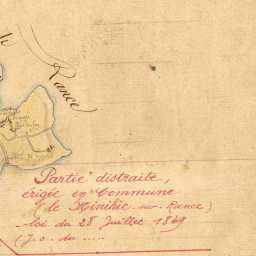 Rance
Partie distraite,
érigée en Commune
(le Minihic sur Rance)
Loi du 28 Juillet 1849
(J.o. du ....